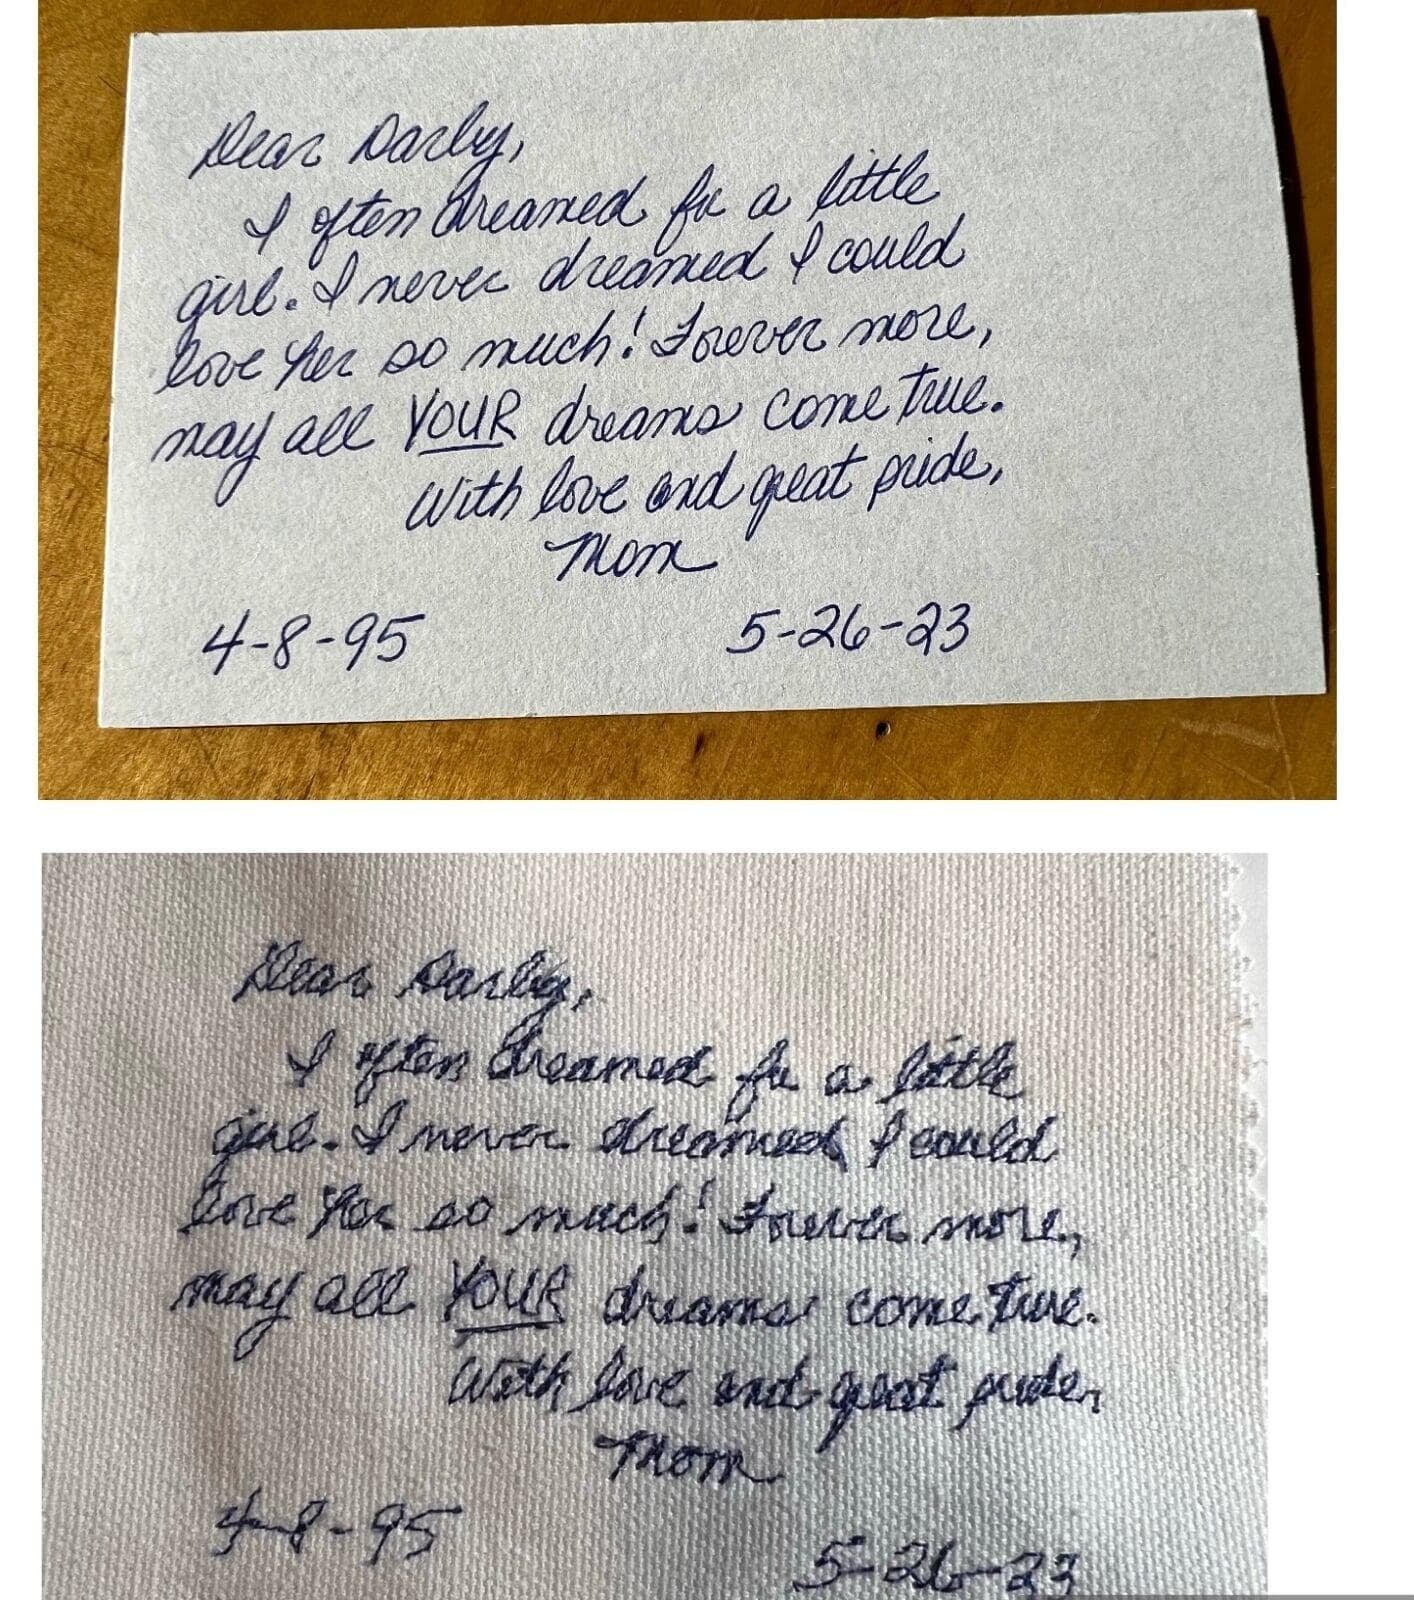 Dear Darby,
I often dreamed for a little
girl. I never dreamed I could
love her so much! Forever more,
may all YOUR dreams come true.
With love and great pride,
Mom
4-8-95 5-26-23
Dear Darby,
I often dreamed for a little
girl. I never dreamed I could
love her so much! Forever more,
may all YOUR dreams come true.
With love and great pride,
Mom
4-8-95 5-26-23